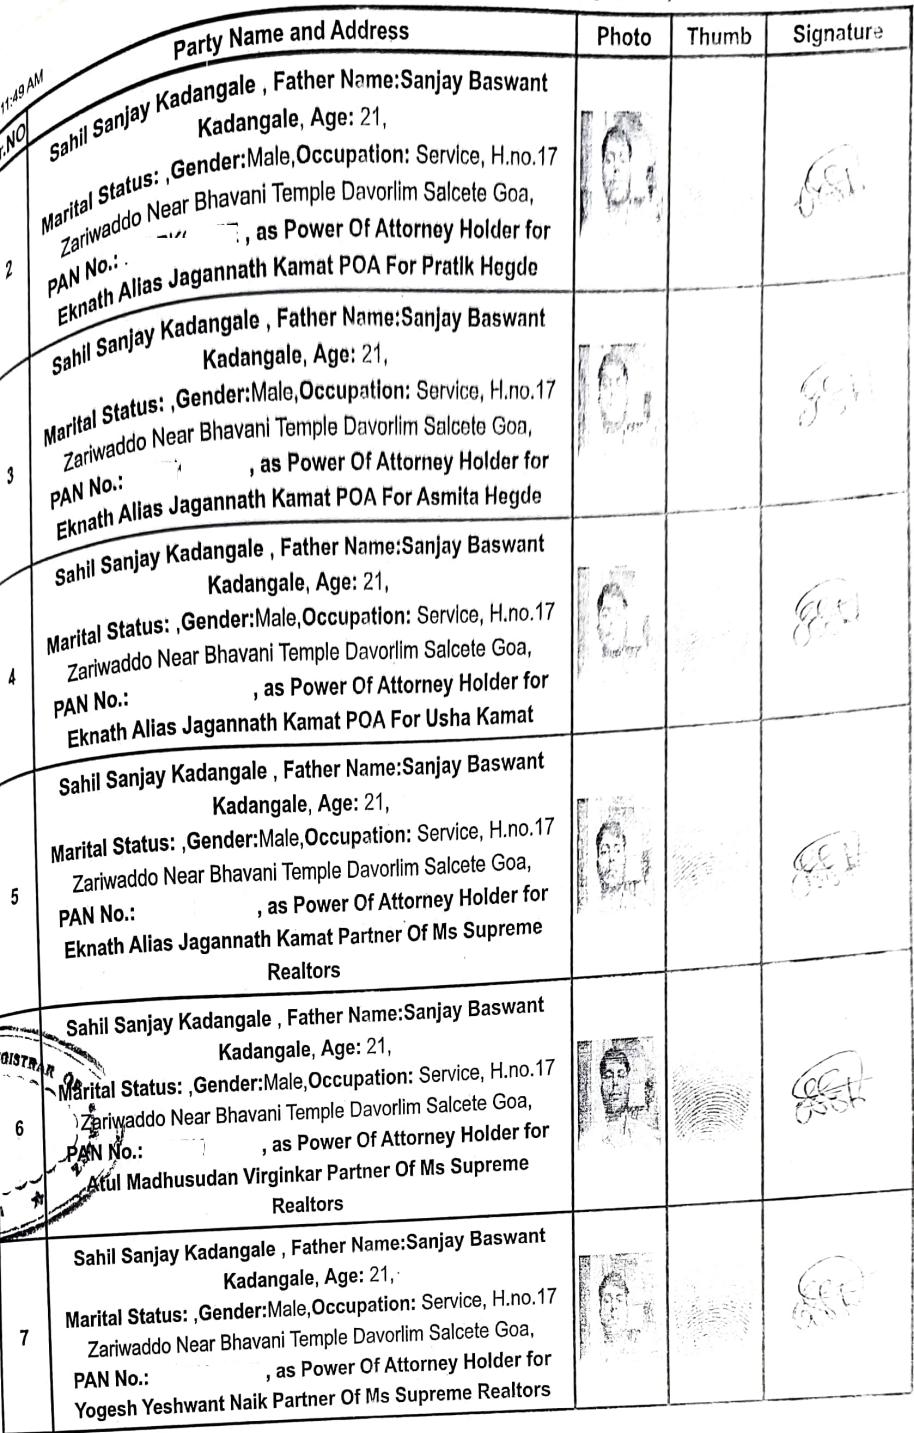 Party Name and Address Photo Thumb Signature
11:49 AM
r.NO
Sahil Sanjay Kadangale , Father Name:Sanjay Baswant
Kadangale, Age: 21,
Marital Status: ,Gender:Male,Occupation: Service, H.no.17
Zariwaddo Near Bhavani Temple Davorlim Salcete Goa,
2 PAN No.: , as Power Of Attorney Holder for
Eknath Alias Jagannath Kamat POA For Pratik Hegde
Sahil Sanjay Kadangale , Father Name:Sanjay Baswant
Kadangale, Age: 21,
Marital Status: ,Gender:Male,Occupation: Service, H.no.17
Zariwaddo Near Bhavani Temple Davorlim Salcete Goa,
3 PAN No.: , as Power Of Attorney Holder for
Eknath Alias Jagannath Kamat POA For Asmita Hegde
Sahil Sanjay Kadangale , Father Name:Sanjay Baswant
Kadangale, Age: 21,
Marital Status: ,Gender:Male,Occupation: Service, H.no.17
Zariwaddo Near Bhavani Temple Davorlim Salcete Goa,
4 PAN No.: , as Power Of Attorney Holder for
Eknath Alias Jagannath Kamat POA For Usha Kamat
Sahil Sanjay Kadangale , Father Name:Sanjay Baswant
Kadangale, Age: 21,
Marital Status: ,Gender:Male,Occupation: Service, H.no.17
Zariwaddo Near Bhavani Temple Davorlim Salcete Goa,
5 PAN No.: , as Power Of Attorney Holder for
Eknath Alias Jagannath Kamat Partner Of Ms Supreme
Realtors
Sahil Sanjay Kadangale , Father Name:Sanjay Baswant
Kadangale, Age: 21,
GISTRAR OF
Marital Status: ,Gender:Male,Occupation: Service, H.no.17
6 Zariwaddo Near Bhavani Temple Davorlim Salcete Goa,
PAN No.: , as Power Of Attorney Holder for
Atul Madhusudan Virginkar Partner Of Ms Supreme
Realtors
Sahil Sanjay Kadangale , Father Name:Sanjay Baswant
Kadangale, Age: 21,
Marital Status: ,Gender:Male,Occupation: Service, H.no.17
7 Zariwaddo Near Bhavani Temple Davorlim Salcete Goa,
PAN No.: , as Power Of Attorney Holder for
Yogesh Yeshwant Naik Partner Of Ms Supreme Realtors